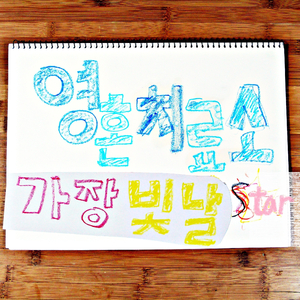 영혼치료소
가장 빛날 Star